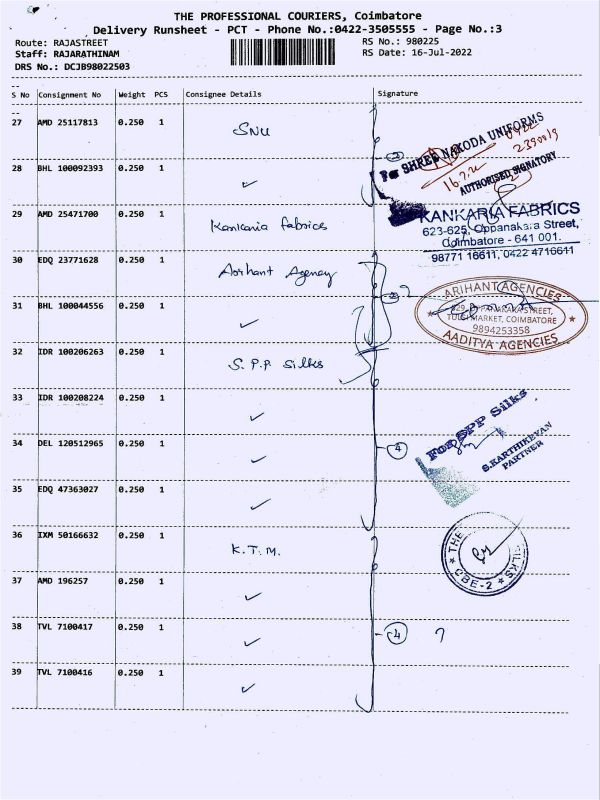 THE PROFESSIONAL COURIERS, Coimbatore
Delivery Runsheet - PCT - Phone No.:0422-3505555 - Page No.:3
Route: RAJASTREET RS No.: 980225
Staff: RAJARATHINAM RS Date: 16-Jul-2022
DRS No.: DCJB98022503
S No Consignment No Weight PCS Consignee Details Signature
27 AMD 25117813 0.250 1 SNU
For SHREE NAKODA UNIFORMS
16.7.22
2390019
AUTHORISED SIGNATORY
28 BHL 100092393 0.250 1 ✓
2
29 AMD 25471700 0.250 1 Kankaria fabrics
KANKARIA FABRICS
623-625, Oppanakara Street,
Coimbatore - 641 001.
98771 16611, 0422 4716611
30 EDQ 23771628 0.250 1 Arihant Agency
2
ARIHANT AGENCIES
829, OPPANAKARA STREET,
MARKET, COIMBATORE
9894253358
AADITYA AGENCIES
31 BHL 100044556 0.250 1 ✓
32 IDR 100206263 0.250 1 S.P.P silks
33 IDR 100208224 0.250 1 ✓
For SPP Silks
S.KARTHIKEYAN
PARTNER
34 DEL 120512965 0.250 1 ✓ 4
35 EDQ 47363027 0.250 1 ✓
36 IXM 50166632 0.250 1 K.T.M.
THE SILKS
CBE-2
37 AMD 196257 0.250 1 ✓
38 TVL 7100417 0.250 1 ✓ 4 ?
39 TVL 7100416 0.250 1 ✓